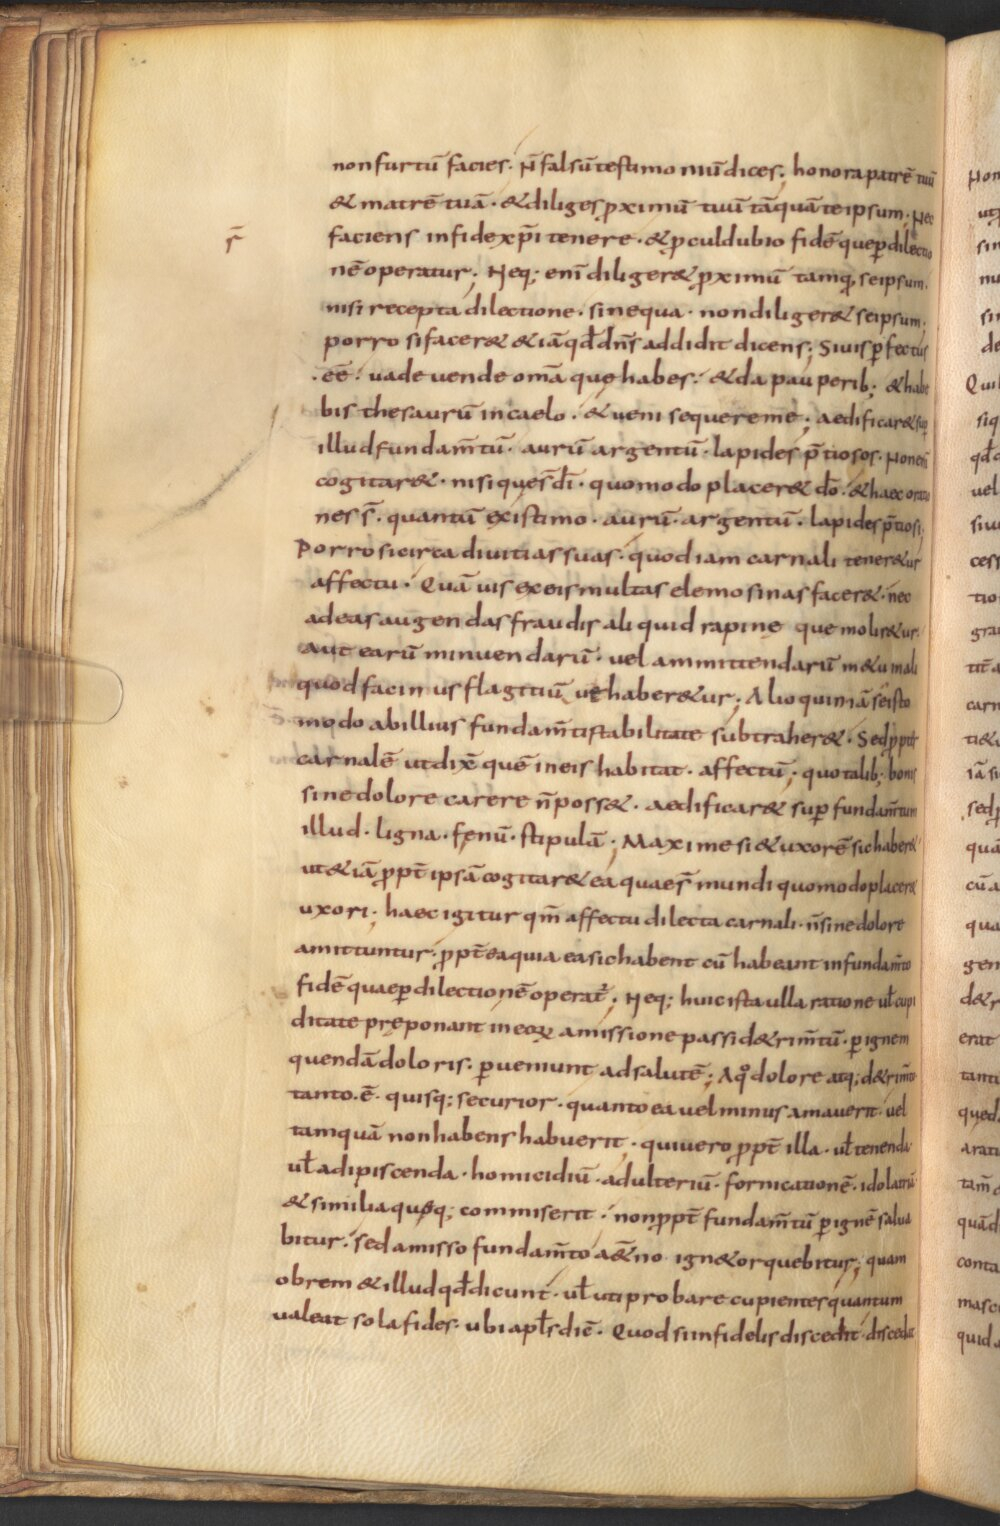 non furtū facies · N̄ falsū testimoniū dices ; honora patrē tuū
& matrē tuā · & diliges p̄ximū tuū tāquā te ipsum · Nec
s̄
faciens in fide xp̄i tenere · & ꝓcul dubio fidē que ꝑ dilectio
nē operatur ; Neq; enī diliger& ꝓximū tamq̄ seipsum ·
nisi recepta dilectione · sine qua · non diliger& seipsum ;
porro si facer& & iā qd̄ dn̄s addidit dicens ; Si uis ꝑfectus
· eē · uade uende omā quę habes · & da pauperib; · & habe
bis thesaurū in caelo · & ueni sequere me ; aedificar& suꝑ
illud fundam̄tū · aurū argentū · lapides p̄tiosos · Non enī
cogitar& · nisi que s̄ dī · quomodo placer& dō · & haec oratio
nes s̄ · quantū existimo · aurū · argentū · lapides p̄tiosi ;
Porro si circa diuitias suas · quod iam carnali tener&ur
affectu · Quā uis ex eis multas elemosinas facer& · nec
ad eas augendas fraudis aliquid rapinę que molir&ur ·
aut earū minuendarū · uel ammittendarū m&u in ali
quod facinus flagitiū uę haber&ur ; Alioquin iā se isto
modo ab illius fundam̄ti stabilitate subtraher& · Sed ꝓpter
carnalē ut dixē quē in eis habitat · affectū · quo talib; bonis
sine dolore carere n̄ poss& · aedificar& suꝑ fundam̄tum
illud · ligna · fęnū · stipulā ; Maxime si & uxorē sic haber&
ut &iā ꝓpt̄ ipsā cogitar& ea quae s̄ mundi quomodo placer&
uxori ; haec igitur qm̄ affectu dilecta carnali · n̄ sine dolore
amittuntur · ꝓpt̄ ea quia ea sic habent cū habeant in fundam̄to
fidē quae ꝑ dilectionē operat̄ ; Neq; huic ista ulla ratione ut̄ cupi
ditate pręponant in eoꝝ amissione passi d&rim̄tū · ꝑ ignem
quendā doloris · ꝑueniunt ad salutē ; A qͦ dolore atq; d&rim̄to
tanto · ē · quisq; securior · quanto ea uel minus amauerit · uel
tamquā non habens habuerit · qui uero ꝓpt̄ illa · ul̄ tenenda
ul̄ adipiscenda · homicidiū · adulteriū · fornicationē · idolatriā
& similia quęq; commiserit · non ꝓpt̄ fundam̄tū ꝑ ignē salua
bitur · sed amisso fundam̄to a&̄no ign& orquebitur ; quam
obrem & illud qd̄ dicunt · ul̄ uti probare cupientes quantum
ualeat sola fides · ubi apl̄s diē · Quod si infidelis discedit discedat